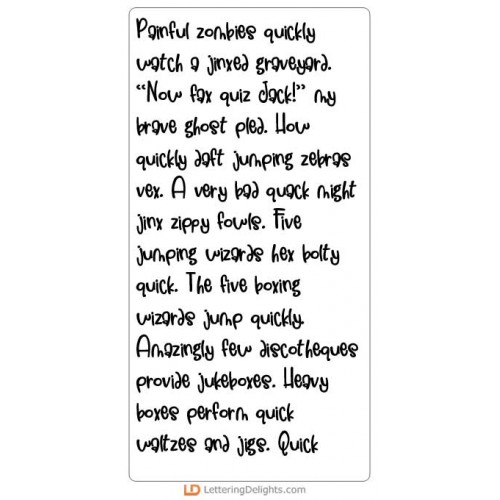 Painful zombies quickly
watch a jinxed graveyard.
“Now fax quiz Jack!” my
brave ghost pled. How
quickly daft jumping zebras
vex. A very bad quack might
jinx zippy fowls. Five
jumping wizards hex bolty
quick. The five boxing
wizards jump quickly.
Amazingly few discotheques
provide jukeboxes. Heavy
boxes perform quick
waltzes and jigs. Quick
LD LetteringDelights.com